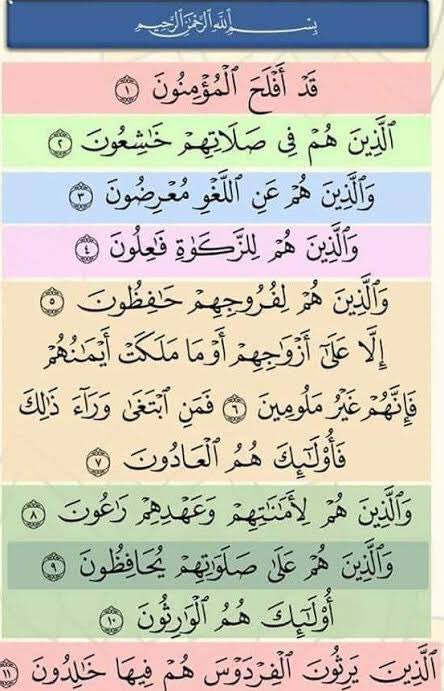 بِسْمِ ٱللَّهِ ٱلرَّحْمَٰنِ ٱلرَّحِيمِ
قَدْ أَفْلَحَ ٱلْمُؤْمِنُونَ ١
ٱلَّذِينَ هُمْ فِى صَلَاتِهِمْ خَٰشِعُونَ ٢
وَٱلَّذِينَ هُمْ عَنِ ٱللَّغْوِ مُعْرِضُونَ ٣
وَٱلَّذِينَ هُمْ لِلزَّكَوٰةِ فَٰعِلُونَ ٤
وَٱلَّذِينَ هُمْ لِفُرُوجِهِمْ حَٰفِظُونَ ٥
إِلَّا عَلَىٰٓ أَزْوَٰجِهِمْ أَوْ مَا مَلَكَتْ أَيْمَٰنُهُمْ
فَإِنَّهُمْ غَيْرُ مَلُومِينَ ٦ فَمَنِ ٱبْتَغَىٰ وَرَآءَ ذَٰلِكَ
فَأُو۟لَٰٓئِكَ هُمُ ٱلْعَادُونَ ٧
وَٱلَّذِينَ هُمْ لِأَمَٰنَٰتِهِمْ وَعَهْدِهِمْ رَٰعُونَ ٨
وَٱلَّذِينَ هُمْ عَلَىٰ صَلَوَٰتِهِمْ يُحَافِظُونَ ٩
أُو۟لَٰٓئِكَ هُمُ ٱلْوَٰرِثُونَ ١٠
ٱلَّذِينَ يَرِثُونَ ٱلْفِرْدَوْسَ هُمْ فِيهَا خَٰلِدُونَ ١١